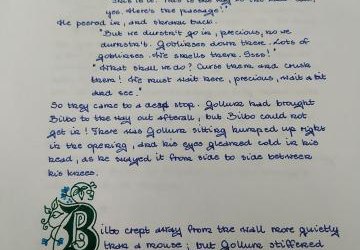 yes. Here's the passage!"
He peered in, and shrank back.
"But we durstn't go in, precious, no we
durstn't. Goblinses down there. Lots of
goblinses. We smells them. Ssss!"
"What shall we do? Curse them and crush
them! We must wait here, precious, wait a bit
and see."
So they came to a dead stop. Gollum had brought
Bilbo to the way out afterall, but Bilbo could not
get in! There was Gollum sitting humped up right
in the opening, and his eyes gleamed cold in his
head, as he swayed it from side to side between
his knees.
Bilbo crept away from the wall more quietly
than a mouse; but Gollum stiffened